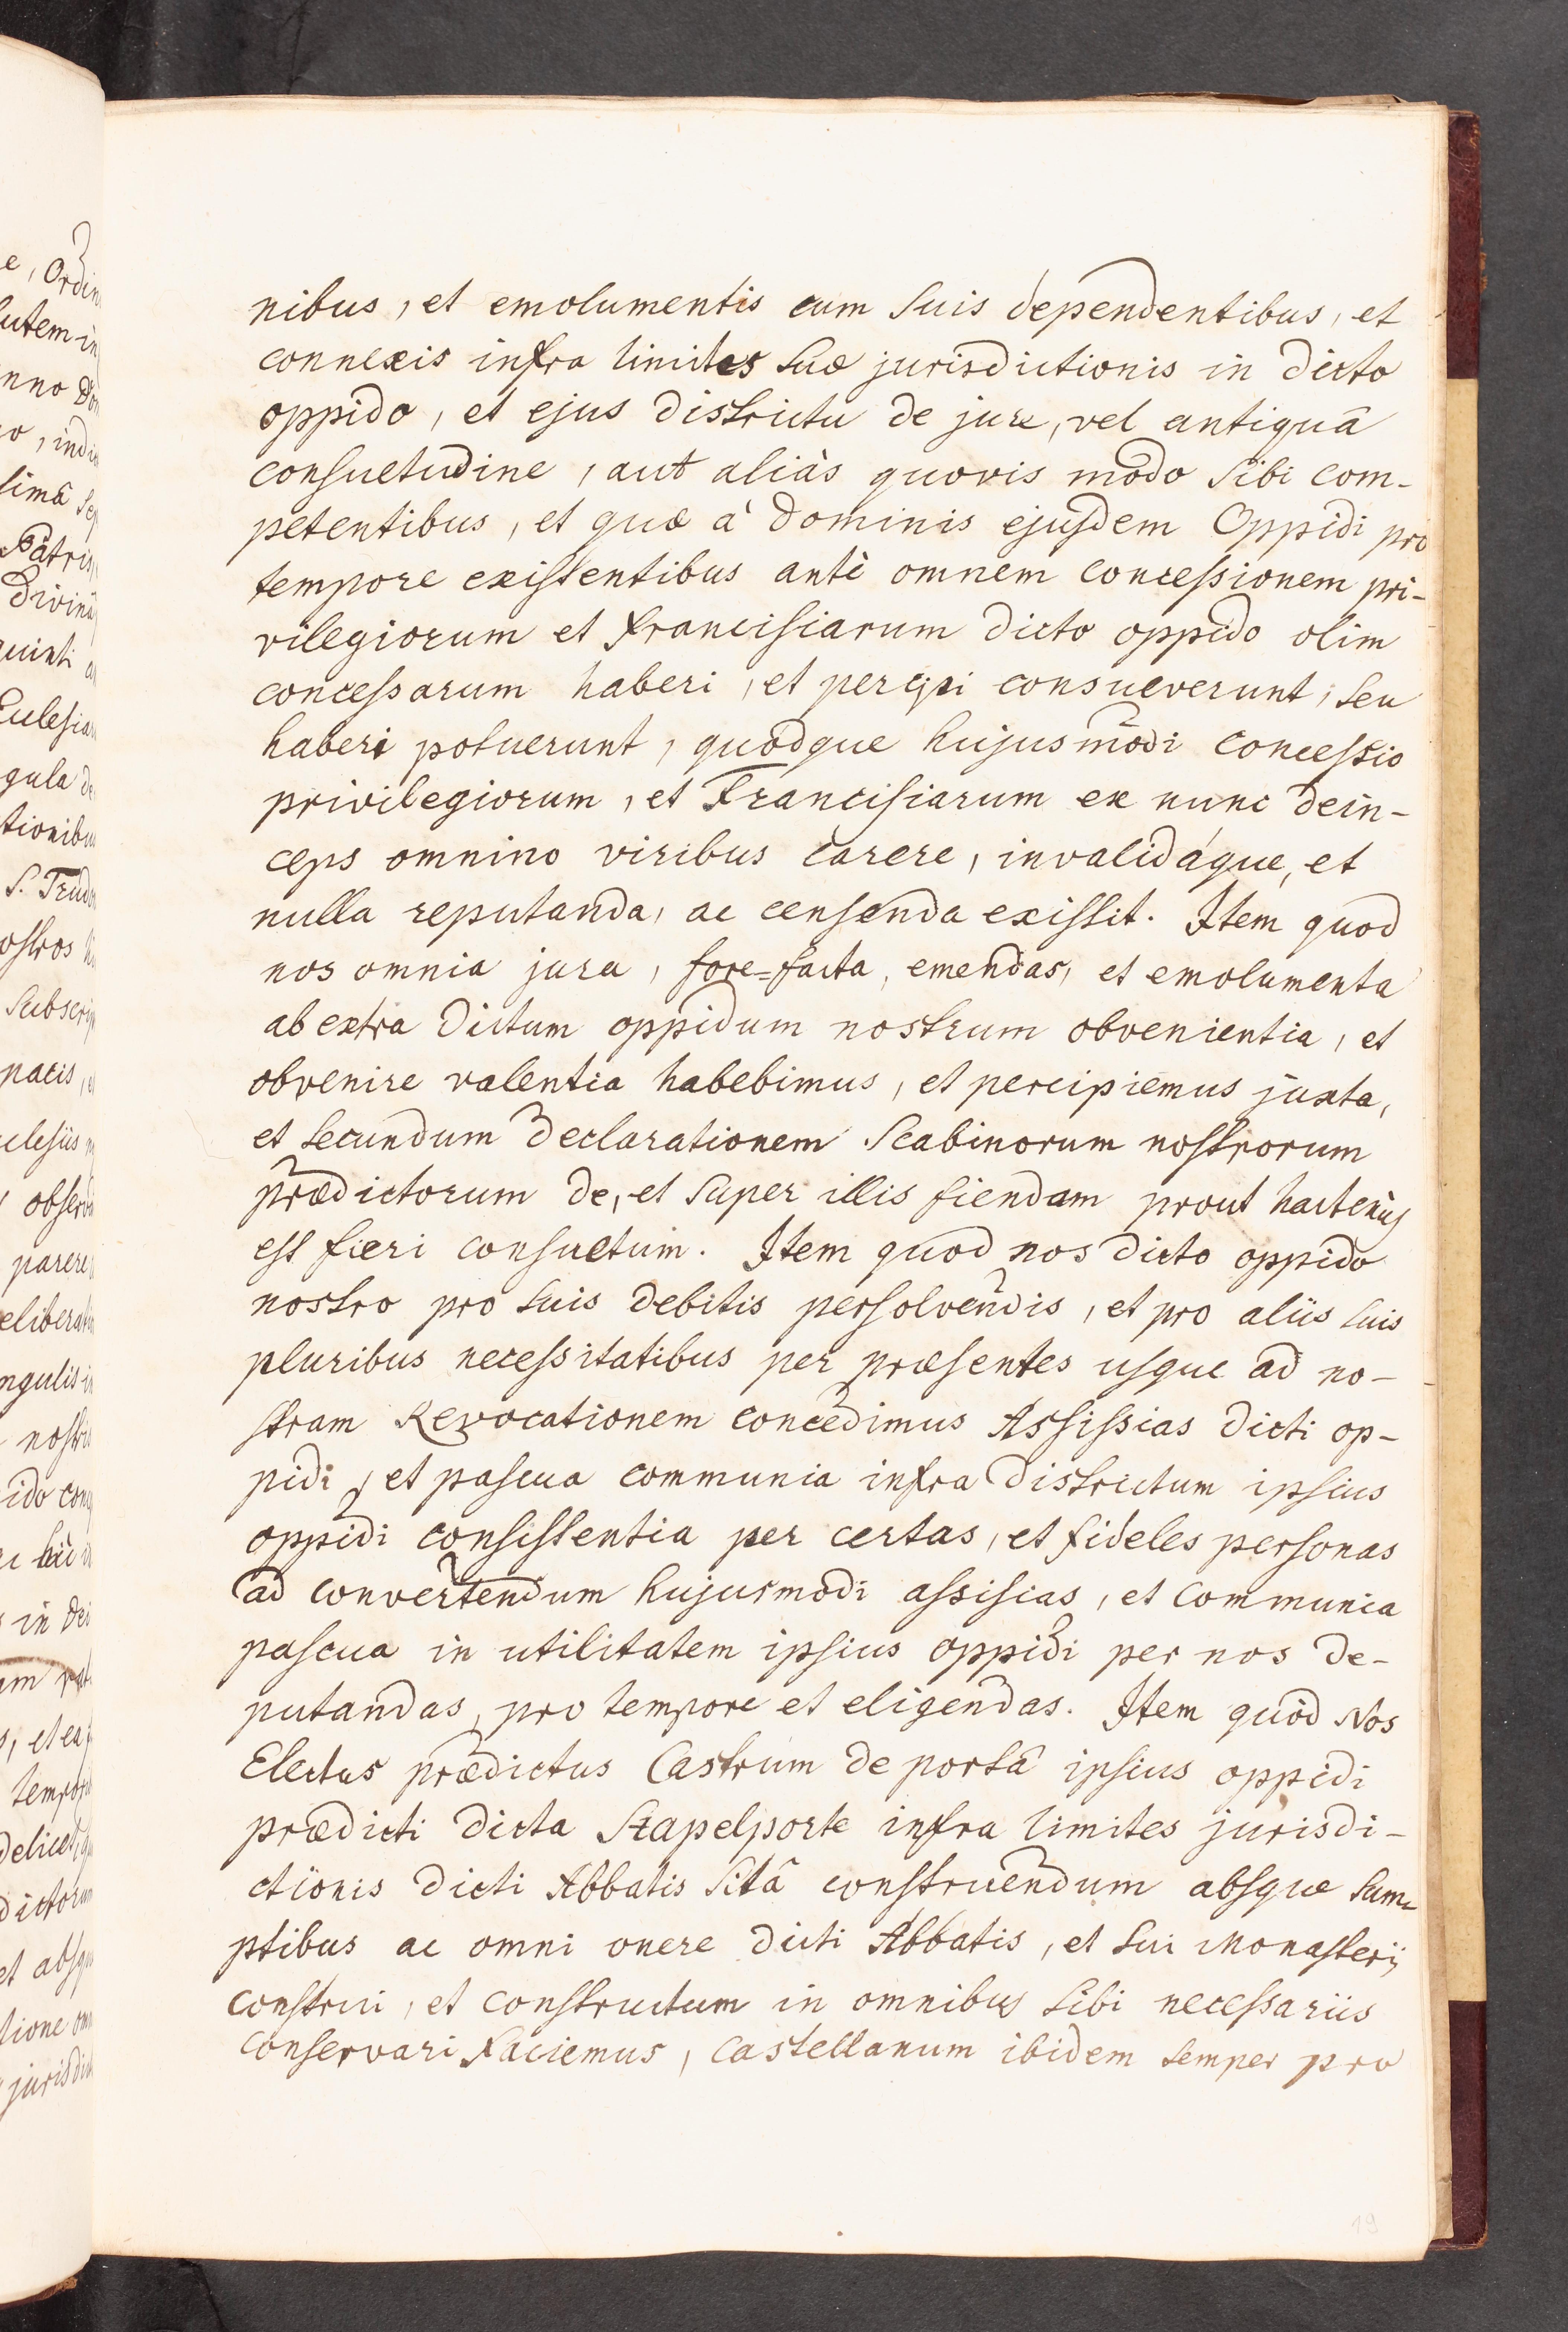 nibus, et emolumentis cum suis dependentibus, et
connexis infra limites suæ jurisdictionis in dicto
oppido, et ejus districtu de jure, vel antiquâ
consuetudine, aut aliàs quovis modo sibi com-
petentibus, et quæ à Dominis ejusdem Oppidi pro
tempore existentibus antè omnem concessionem pri-
vilegiorum et francisiarum dicto oppido olim
concessarum haberi, et percipi consueverunt, seu
haberi potuerunt, quodque hujusmodi concessio
privilegiorum, et Francisiarum ex nunc dein-
ceps omnino viribus carere, invalidáque, et
nulla reputanda, ac censenda existit. Item quod
nos omnia jura, fore=facta, emendas, et emolumenta
ab extra dictum oppidum nostrum obvenientia, et
obvenire valentia habebimus, et percipiemus juxta,
et secundum declarationem Scabinorum nostrorum
prædictorum de, et super illis fiendam prout hactenùs
est fieri consuetum. Item quod nos dicto oppido
nostro pro suis debitis persolvendis, et pro aliis suis
pluribus necessitatibus per præsentes usque ad no-
stram Revocationem concedimus Assissias dicti op-
pidi, et pascua communia infra districtum ipsius
oppidi consistentia per certas, et fideles personas
ad convertendum hujusmodi assisias, et communia
pascua in utilitatem ipsius oppidi per nos de-
putandas, pro tempore et eligendas. Item quòd Nos
Electus prædictus Castrum de portâ ipsius oppidi
prædicti dicta Stapelporte infra limites jurisdi-
ctionis dicti Abbatis sitâ construendum absque sum-
ptibus ac omni onere dicti Abbatis, et sui Monasterij
construi, et constructum in omnibus sibi necessariis
conservari faciemus, castellanum ibidem semper pro
19
e, Ordin
utem in
nno
o, indi
Patris
divinâ
uinti
Ecclesia
gula de
tionibu
S. Trud
ostros
subscri
pacis, e
clesiis
observ
parere
eliberati
ngulis i
nostri
ido con
in
, et ea
tempor
delicet
dictoru
et absq
tione om
jurisdic